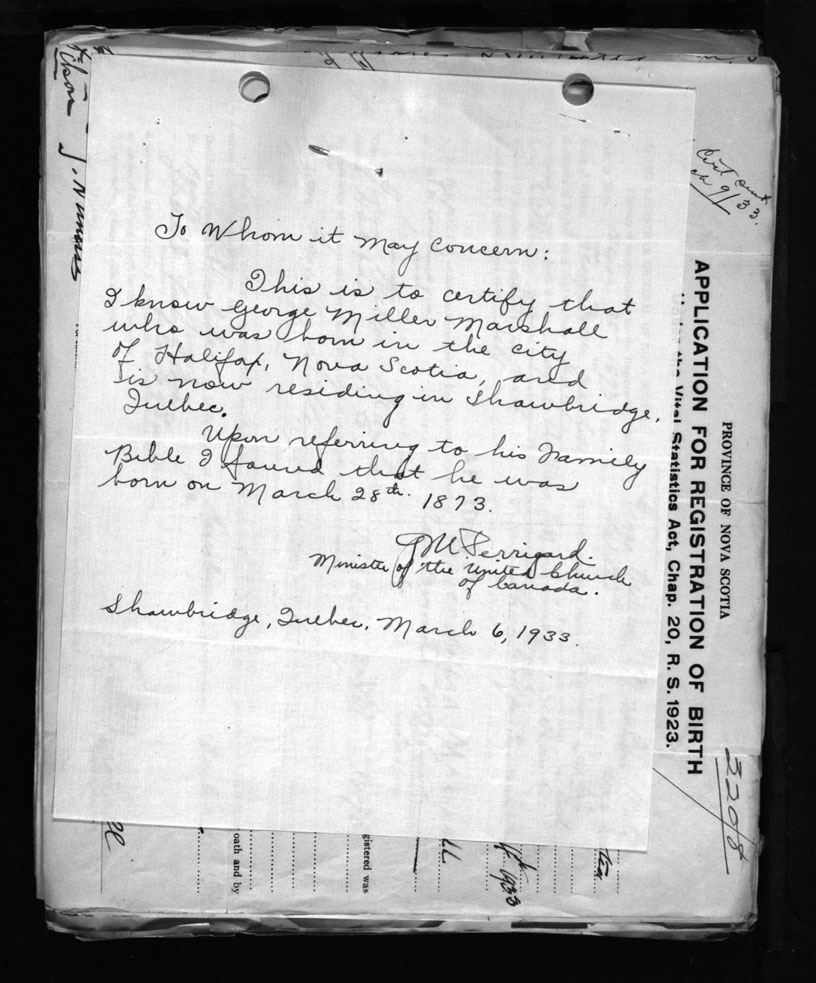 To Whom it May Concern:
This is to certify that
I know George Miller Marshall
who was born in the city
of Halifax, Nova Scotia, and
is now residing in Shawbridge,
Quebec.
Upon referring to his Family
Bible I found that he was
born on March 28th. 1873.
J M Perrigard.
Minister of the United Church
of Canada.
Shawbridge, Quebec, March 6, 1933.
9/33.
PROVINCE OF NOVA SCOTIA
APPLICATION FOR REGISTRATION OF BIRTH
the Vital Statistics Act, Chap. 20, R. S. 1923.
3208
oath and by
gistered was
1933